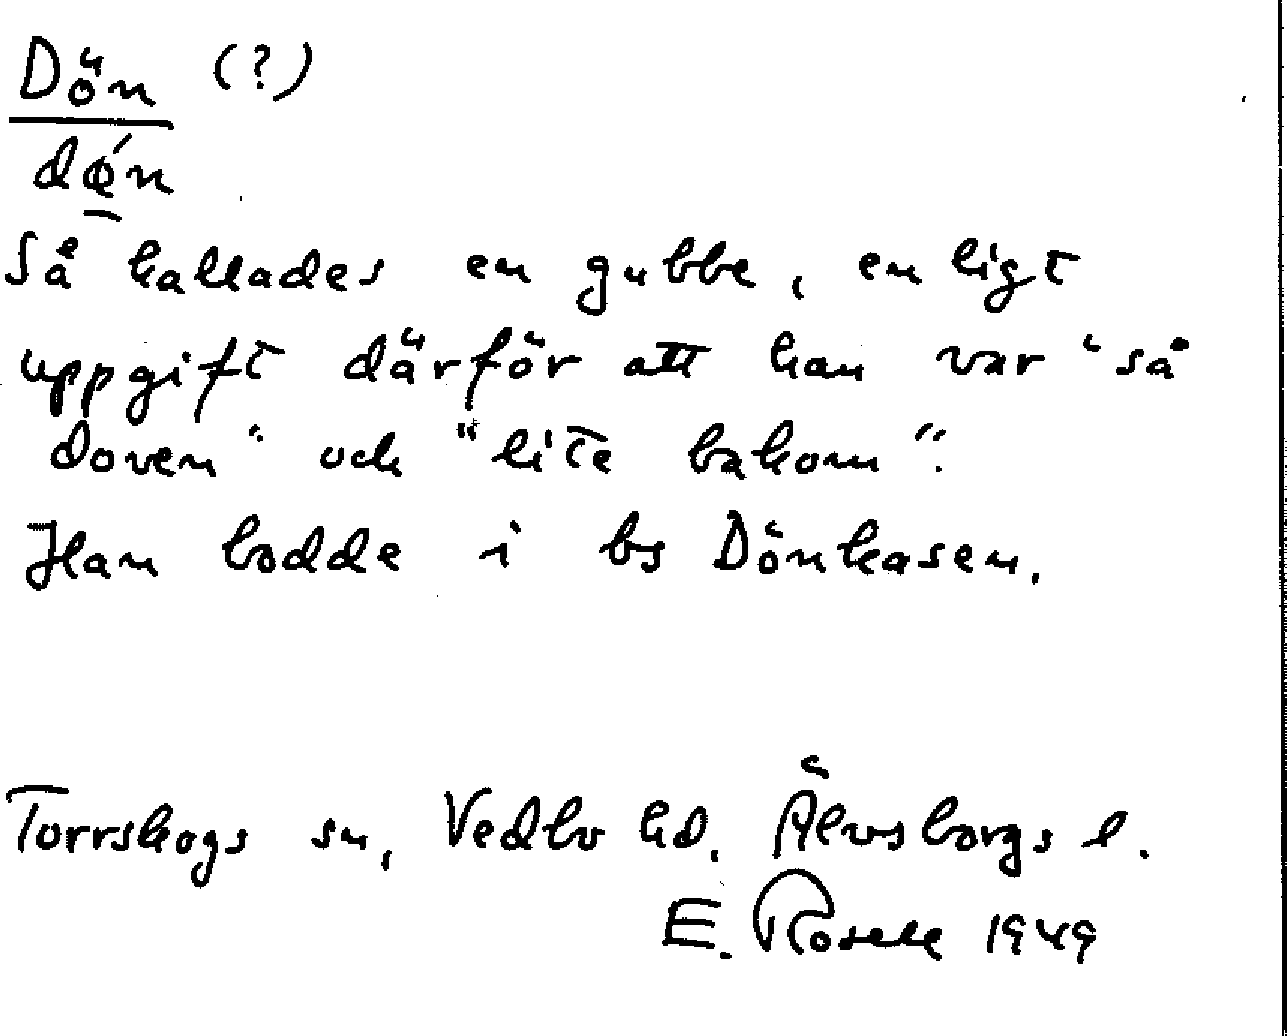 Dön (?)
dǿn
Så kallades en gubbe, enligt
uppgift därför att han var "så
doven" och "lite bakom".
Han bodde i bs Dönkasen.
Torrskogs sn, Vedbo hd. Älvsborgs l.
E. Rosell 1949